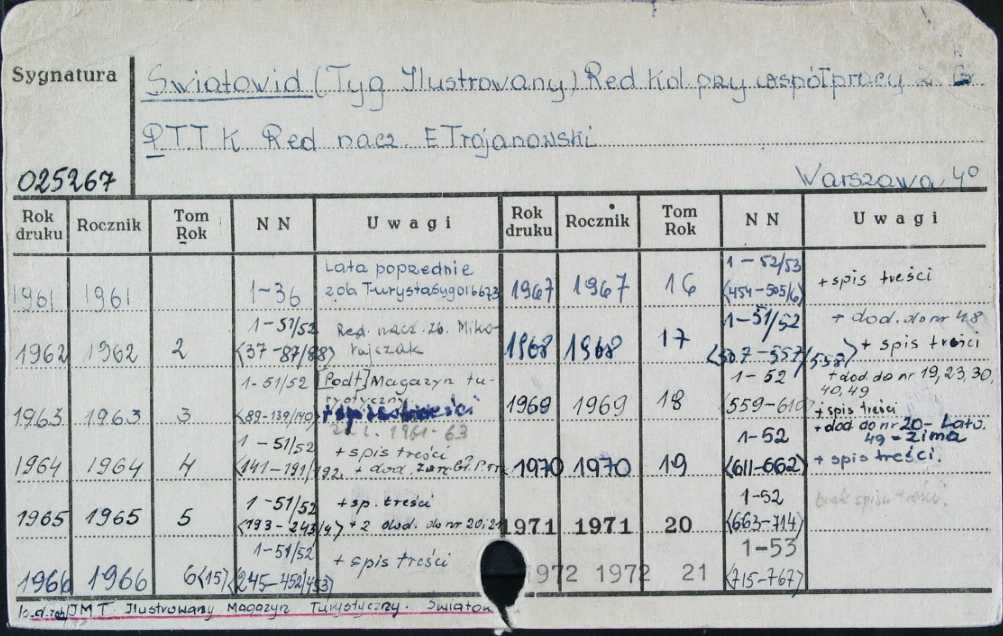 Sygnatura
Światowid (Tyg Ilustrowany) Red Kol przy współpracy z
P.T.T.K Red nacz. E Trojanowski
025267
Warszawa 4°
Rok druku Rocznik Tom Rok N N Uwagi Rok druku Rocznik Tom Rok N N Uwagi
1961 1961 1-36 Lata poprzednie z.ob Turysta syg 016673
1962 1962 2 1-51/52 (37-87/88) Red. nacz. zb. Mikołajczak
1963 1963 3 1-51/52 (89-139/140) [Podt] Magazyn turystyczny + spis treści za l. 1961-63
1964 1964 4 1-51/52 (141-191/192) + spis treści + dod.
1965 1965 5 1-51/52 (193-243/4) + sp. treści +2 dod. do nr 20, 21
1966 1966 6(15) 1-51/52 (245-452/453) + spis treści
1967 1967 16 1-52/53 (454-505/6) + spis treści
1968 1968 17 1-51/52 (507-557/558) + dod. do nr 48 + spis treści
1969 1969 18 1-52 (559-610) + dod. do nr 19, 23, 30, 40, 49 + spis treści
1970 1970 19 1-52 (611-662) + dod do nr 20-Lato. 49-zima + spis treści.
1971 1971 20 1-52 (663-714) brak spisu treści.
1972 1972 21 1-53 (715-767)
IMT. Ilustrowany Magazyn Turystyczny. Światow